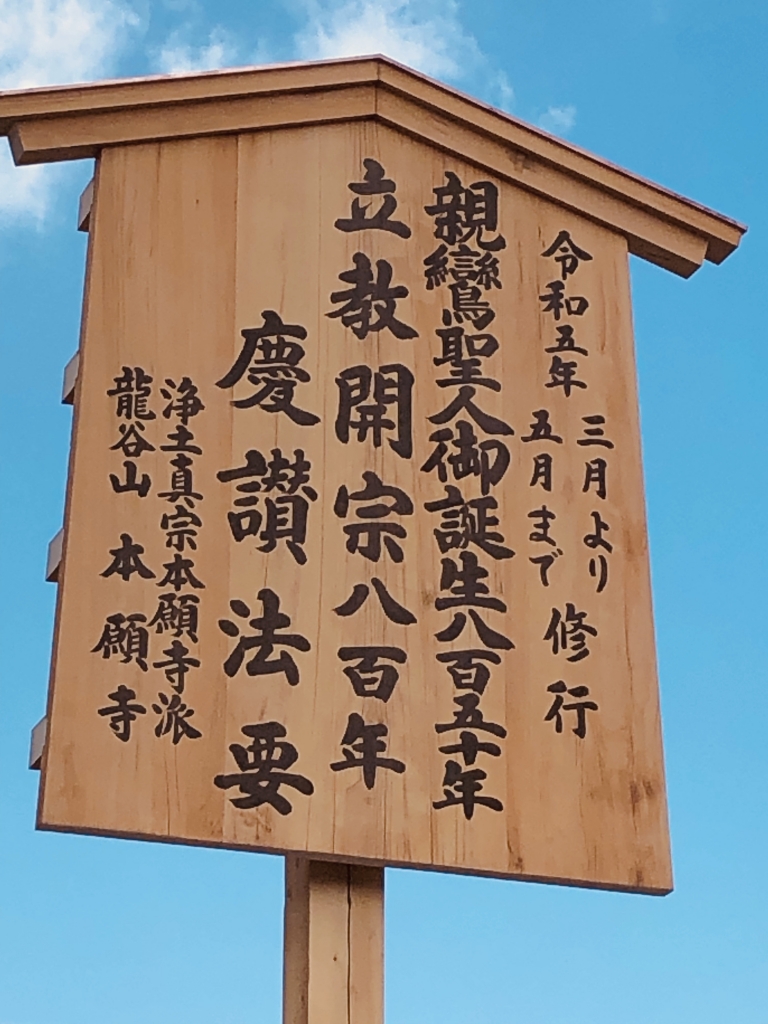 令和五年
三月より
五月まで
修行
親鸞聖人御誕生八百五十年
立教開宗八百年
慶讃法要
浄土真宗本願寺派
龍谷山 本願寺